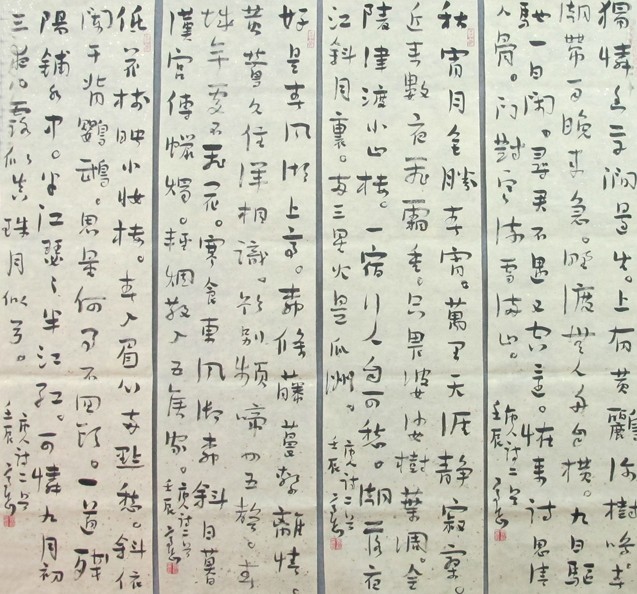 獨憐幽草澗邊生。上有黃鸝深樹鳴。春
潮帶雨晚來急。野渡無人舟自橫。九日驅
馳一日閑。尋君不遇又空還。怪來詩思清
人骨。門對寒流雪滿山。
唐人詩二首
壬辰
秋宵月色勝春宵。萬里天涯靜寂寥。
近來數夜飛霜重。只畏娑婆樹葉凋。金
陵津渡小山樓。一宿行人自可愁。潮落夜
江斜月裏。兩三星火是瓜洲。
唐人詩二首
壬辰
好是春風湖上亭。柳條藤蔓繫離情。
黃鶯久住渾相識。欲別頻啼四五聲。春
城無處不飛花。寒食東風御柳斜。日暮
漢宮傳蠟燭。輕煙散入五侯家。
唐人詩二首
壬辰
低花樹映小妝樓。春入眉心兩點愁。斜倚
闌干背鸚鵡。思量何事不回頭。一道殘
陽鋪水中。半江瑟〻半江紅。可憐九月初
三夜。露似真珠月似弓。
唐人詩二首
壬辰